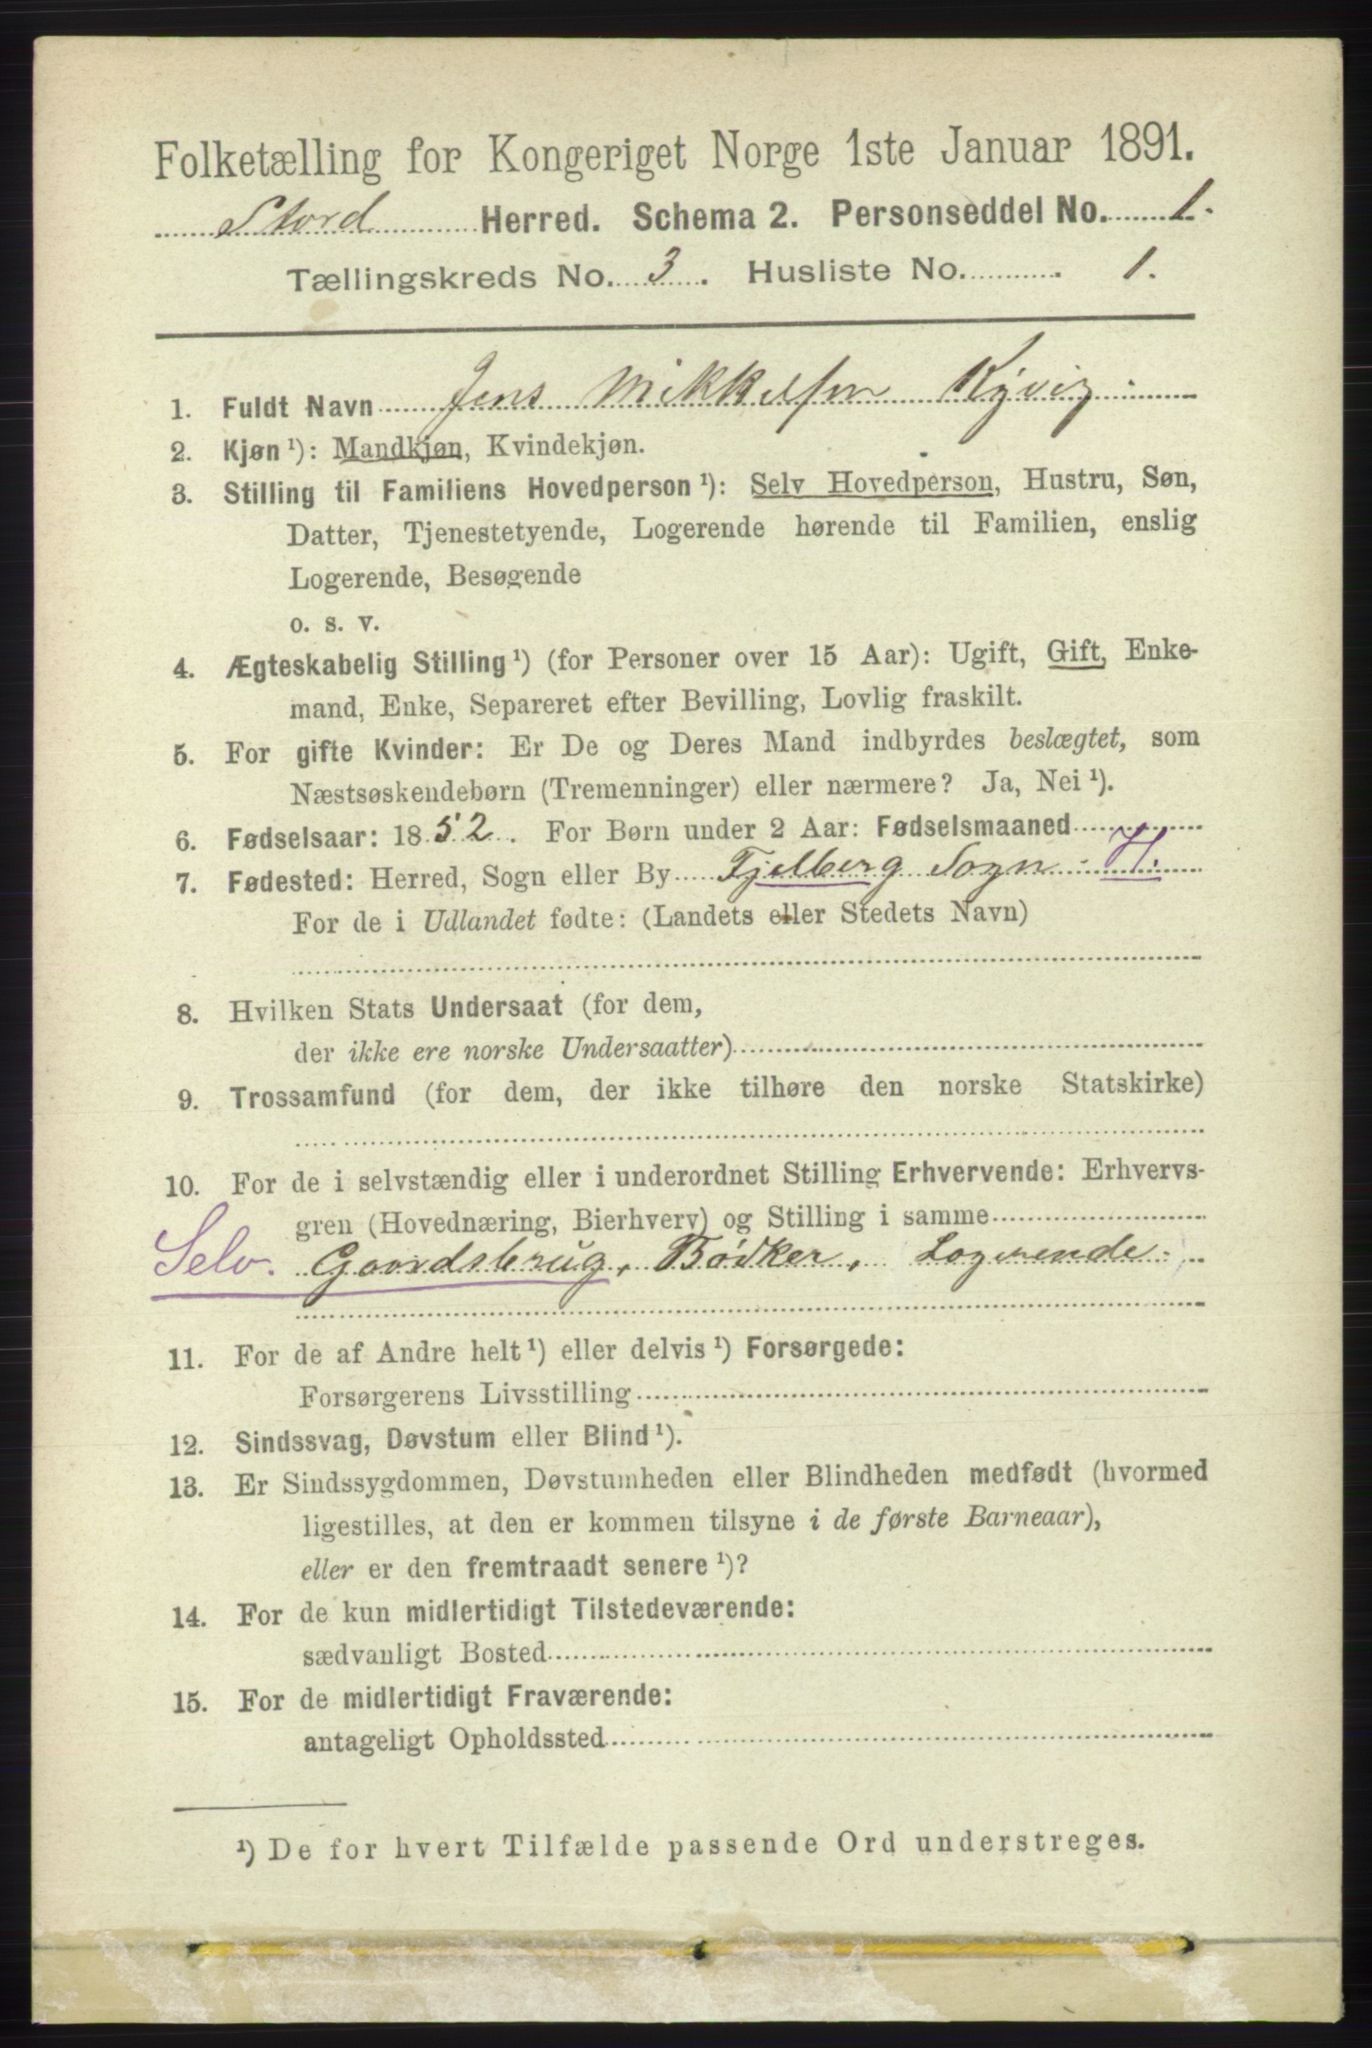 Folketælling for Kongeriget Norge 1ste Januar 1891.
Stord Herred. Schema 2. Personseddel No. 1.
Tællingskreds No. 3. Husliste No. 1.
1. Fuldt Navn Jens Mikkelsen Kyvig.
2. Kjøn ¹): Mandkjøn, Kvindekjøn.
3. Stilling til Familiens Hovedperson ¹): Selv Hovedperson, Hustru, Søn,
Datter, Tjenestetyende, Logerende hørende til Familien, enslig
Logerende, Besøgende
o. s. v.
4. Ægteskabelig Stilling ¹) (for Personer over 15 Aar): Ugift, Gift, Enke-
mand, Enke, Separeret efter Bevilling, Lovlig fraskilt.
5. For gifte Kvinder: Er De og Deres Mand indbyrdes beslægtet, som
Næstsøskendebørn (Tremenninger) eller nærmere? Ja, Nei ¹).
6. Fødselsaar: 1852. For Børn under 2 Aar: Fødselsmaaned
7. Fødested: Herred, Sogn eller By Fjelberg Sogn. H.
For de i Udlandet fødte: (Landets eller Stedets Navn)
8. Hvilken Stats Undersaat (for dem,
der ikke ere norske Undersaatter)
9. Trossamfund (for dem, der ikke tilhøre den norske Statskirke)
10. For de i selvstændig eller i underordnet Stilling Erhvervende: Erhvervs-
gren (Hovednæring, Bierhverv) og Stilling i samme
Selv. Gaardsbrug, Bødker, Logerende.
11. For de af Andre helt ¹) eller delvis ¹) Forsørgede:
Forsørgerens Livsstilling
12. Sindssvag, Døvstum eller Blind ¹).
13. Er Sindssygdommen, Døvstumheden eller Blindheden medfødt (hvormed
ligestilles, at den er kommen tilsyne i de første Barneaar),
eller er den fremtraadt senere ¹)?
14. For de kun midlertidigt Tilstedeværende:
sædvanligt Bosted
15. For de midlertidigt Fraværende:
antageligt Opholdssted
¹) De for hvert Tilfælde passende Ord understreges.